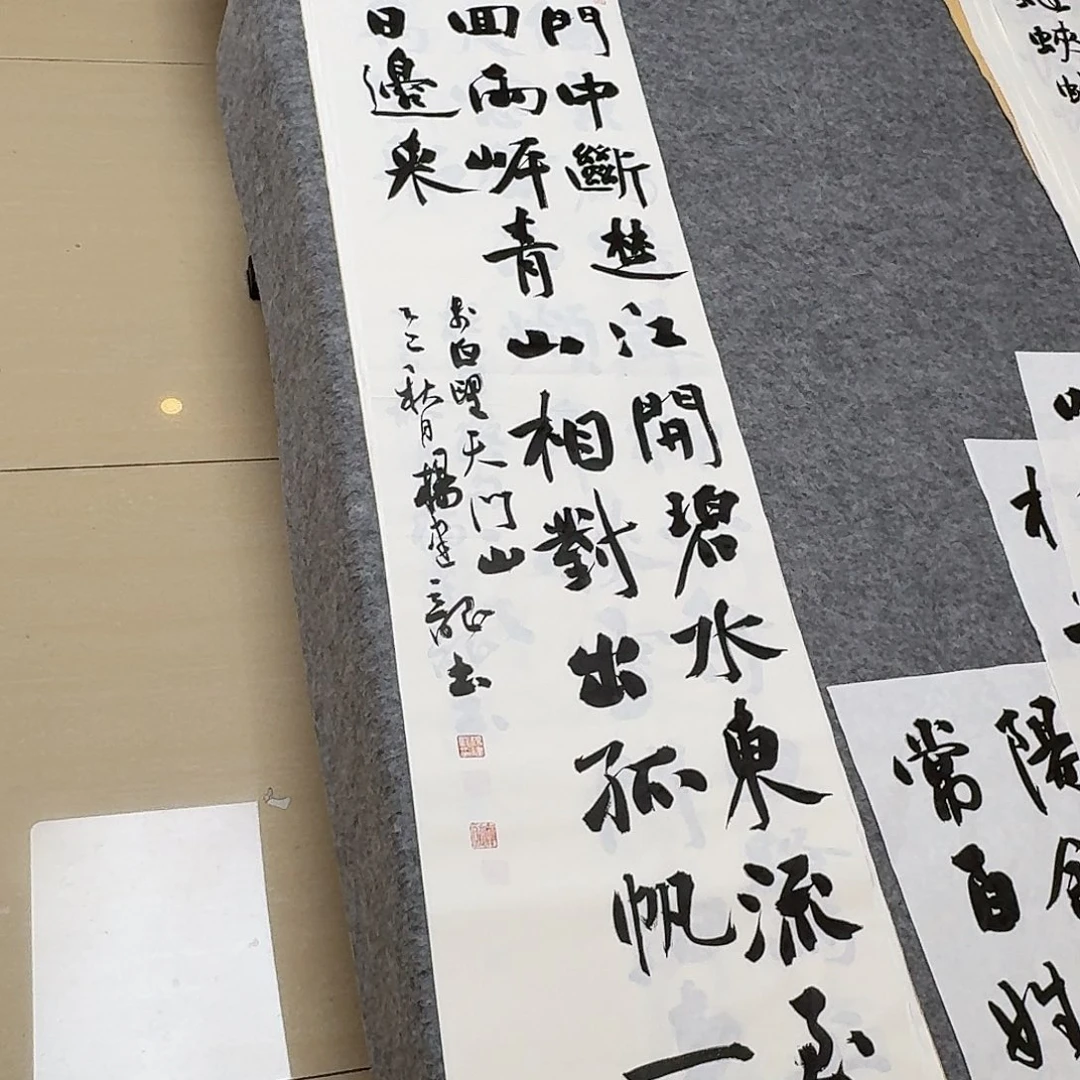 門中斷楚江開碧水東流至
回兩岸青山相對出孤帆一
日邊來
李白望天门山
秋月楊建龍书
蛺
陽
常百姓